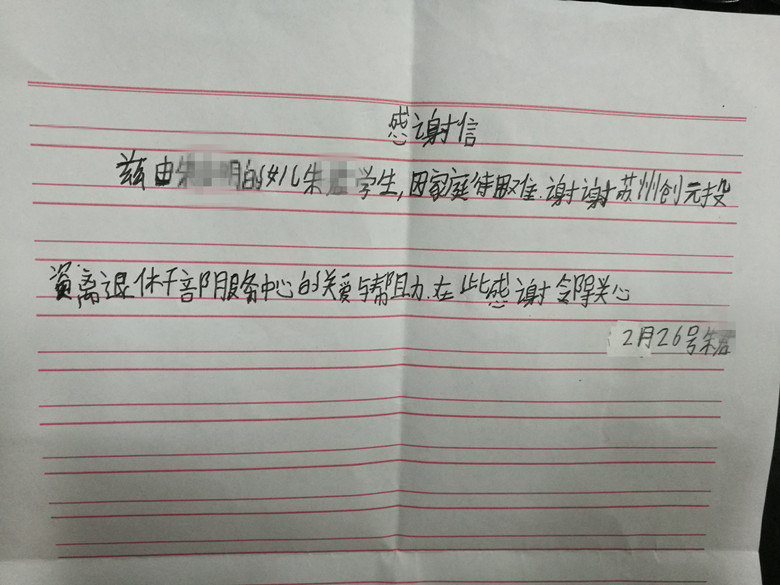 感谢信
兹由朱明的女儿朱学生,因家庭特困难.谢谢苏州创元投
资离退休干部服务中心的关爱与帮助.在此感谢领导关心
2月26号朱